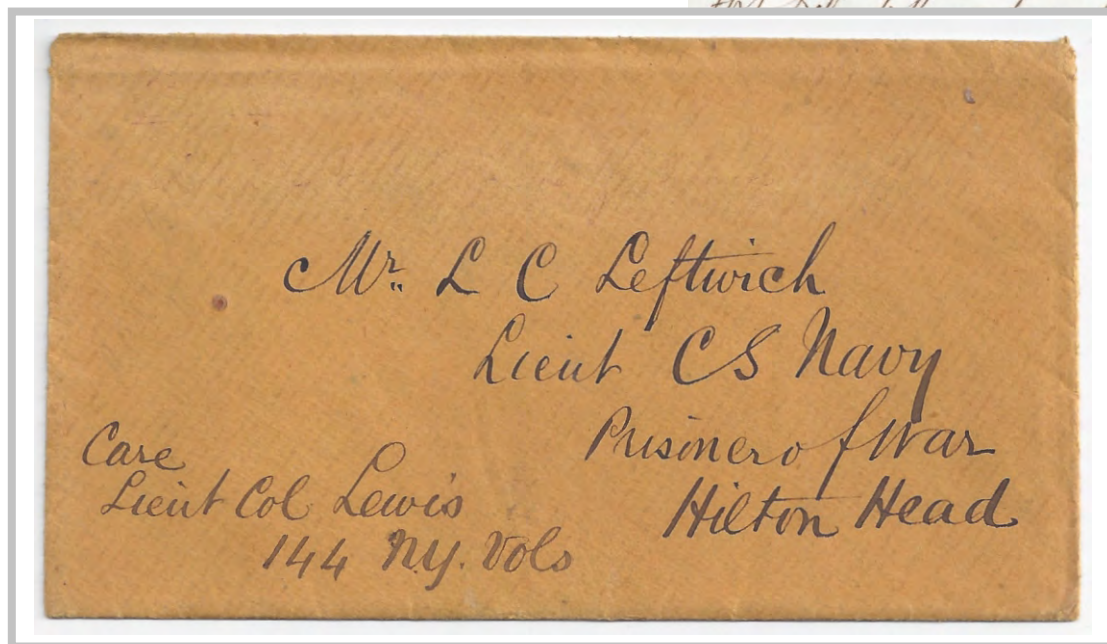 Mr. L C Leftwich
Lieut CS Navy
Prisoner of War
Hilton Head
Care
Lieut Col Lewis
144 N.Y. Vols